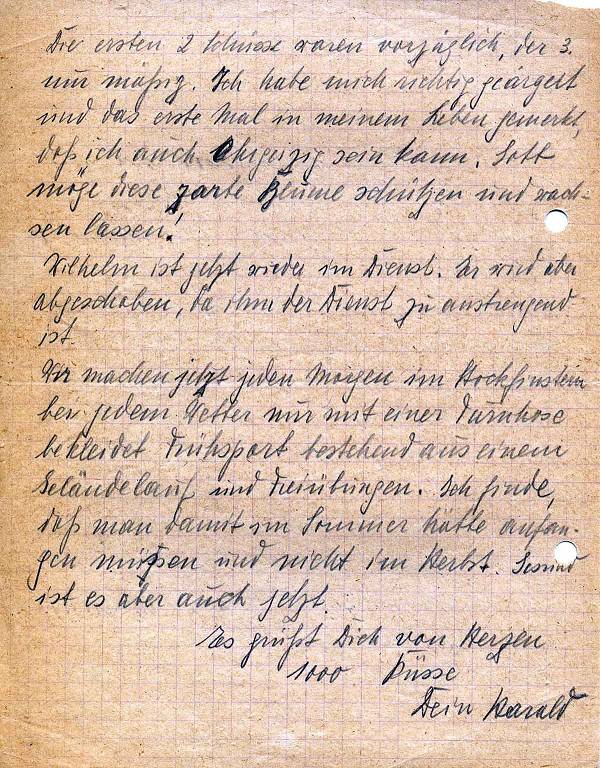 Die ersten 2 Schüsse waren vorzüglich, der 3.
nur mäßig. Ich habe mich richtig geärgert
und das erste Mal in meinem Leben gemerkt,
daß ich auch Ehrgeizig sein kann. Gott
möge diese zarte Blume schützen und wach-
sen lassen!
Wilhelm ist jetzt wieder im Dienst. Er wird aber
abgeschoben, da ihm der Dienst zu anstrengend
ist.
Wir machen jetzt jeden Morgen im Stockfinstern
bei jedem Wetter nur mit einer Turnhose
bekleidet Frühsport bestehend aus einem
Geländelauf und Freiübungen. Ich finde,
daß man damit im Sommer hätte anfan-
gen müssen und nicht im Herbst. Gesund
ist es aber auch jetzt.
Es grüßt Dich von Herzen
1000 Küsse
Dein Harald